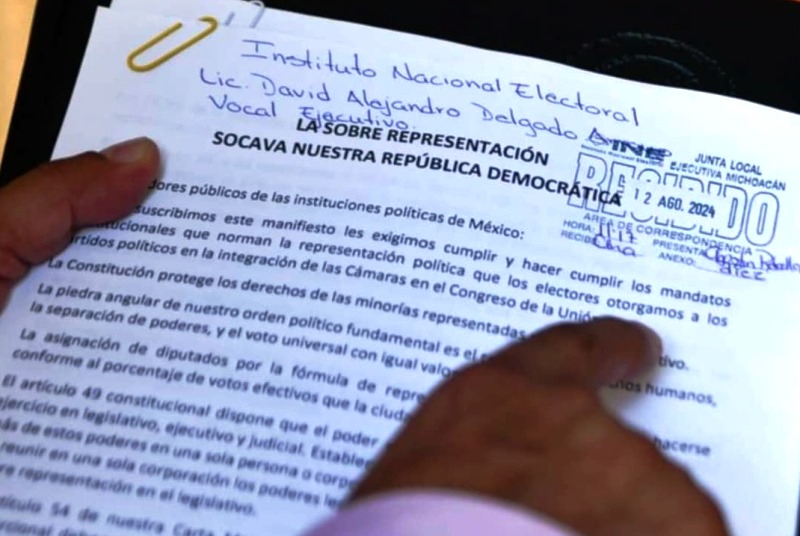 Instituto Nacional Electoral
Lic. David Alejandro Delgado
Vocal Ejecutivo.
INE
JUNTA LOCAL
EJECUTIVA MICHOACÁN
RECIBIDO
12 AGO. 2024
AREA DE CORRESPONDENCIA
HORA: 11:17 PRESENTA
RECIBE ANEXO: diez
LA SOBRE REPRESENTACIÓN
SOCAVA NUESTRA REPÚBLICA DEMOCRÁTICA
dores públicos de las instituciones políticas de México:
suscribimos este manifiesto les exigimos cumplir y hacer cumplir los mandatos
itucionales que norman la representación política que los electores otorgamos a los
artidos políticos en la integración de las Cámaras en el Congreso de la Unión
La Constitución protege los derechos de las minorías representadas tivo.
La piedra angular de nuestro orden político fundamental es el humanos,
la separación de poderes, y el voto universal con igual valor
La asignación de diputados por la fórmula de repre hacerse
conforme al porcentaje de votos efectivos que la ciuda
El artículo 49 constitucional dispone que el poder
ejercicio en legislativo, ejecutivo y judicial. Establece
ás de estos poderes en una sola persona o corpo
reunir en una sola corporación los poderes le
re representación en el legislativo.
tículo 54 de nuestra Carta